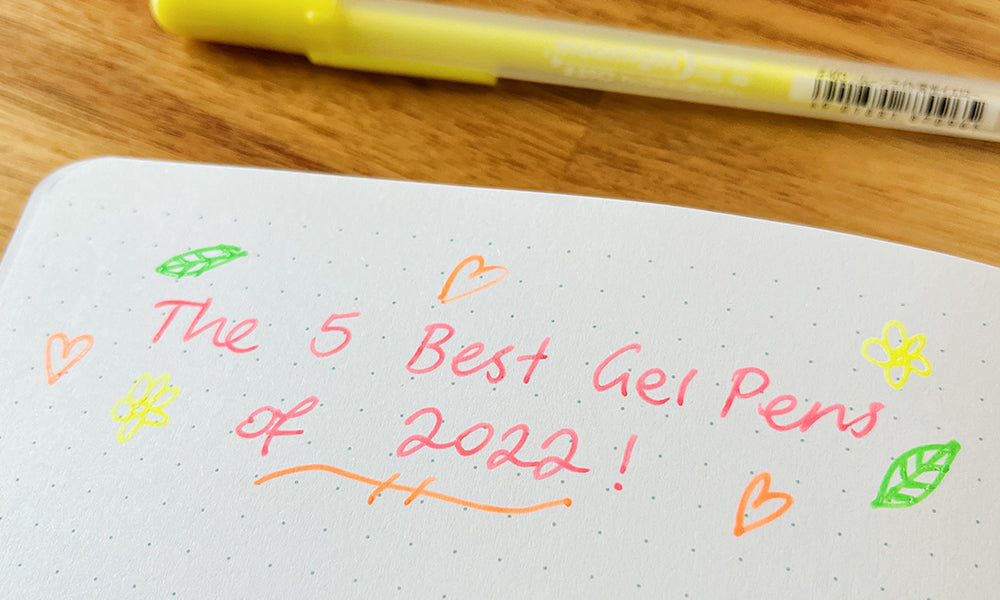 The 5 Best Gel Pens
of 2022!